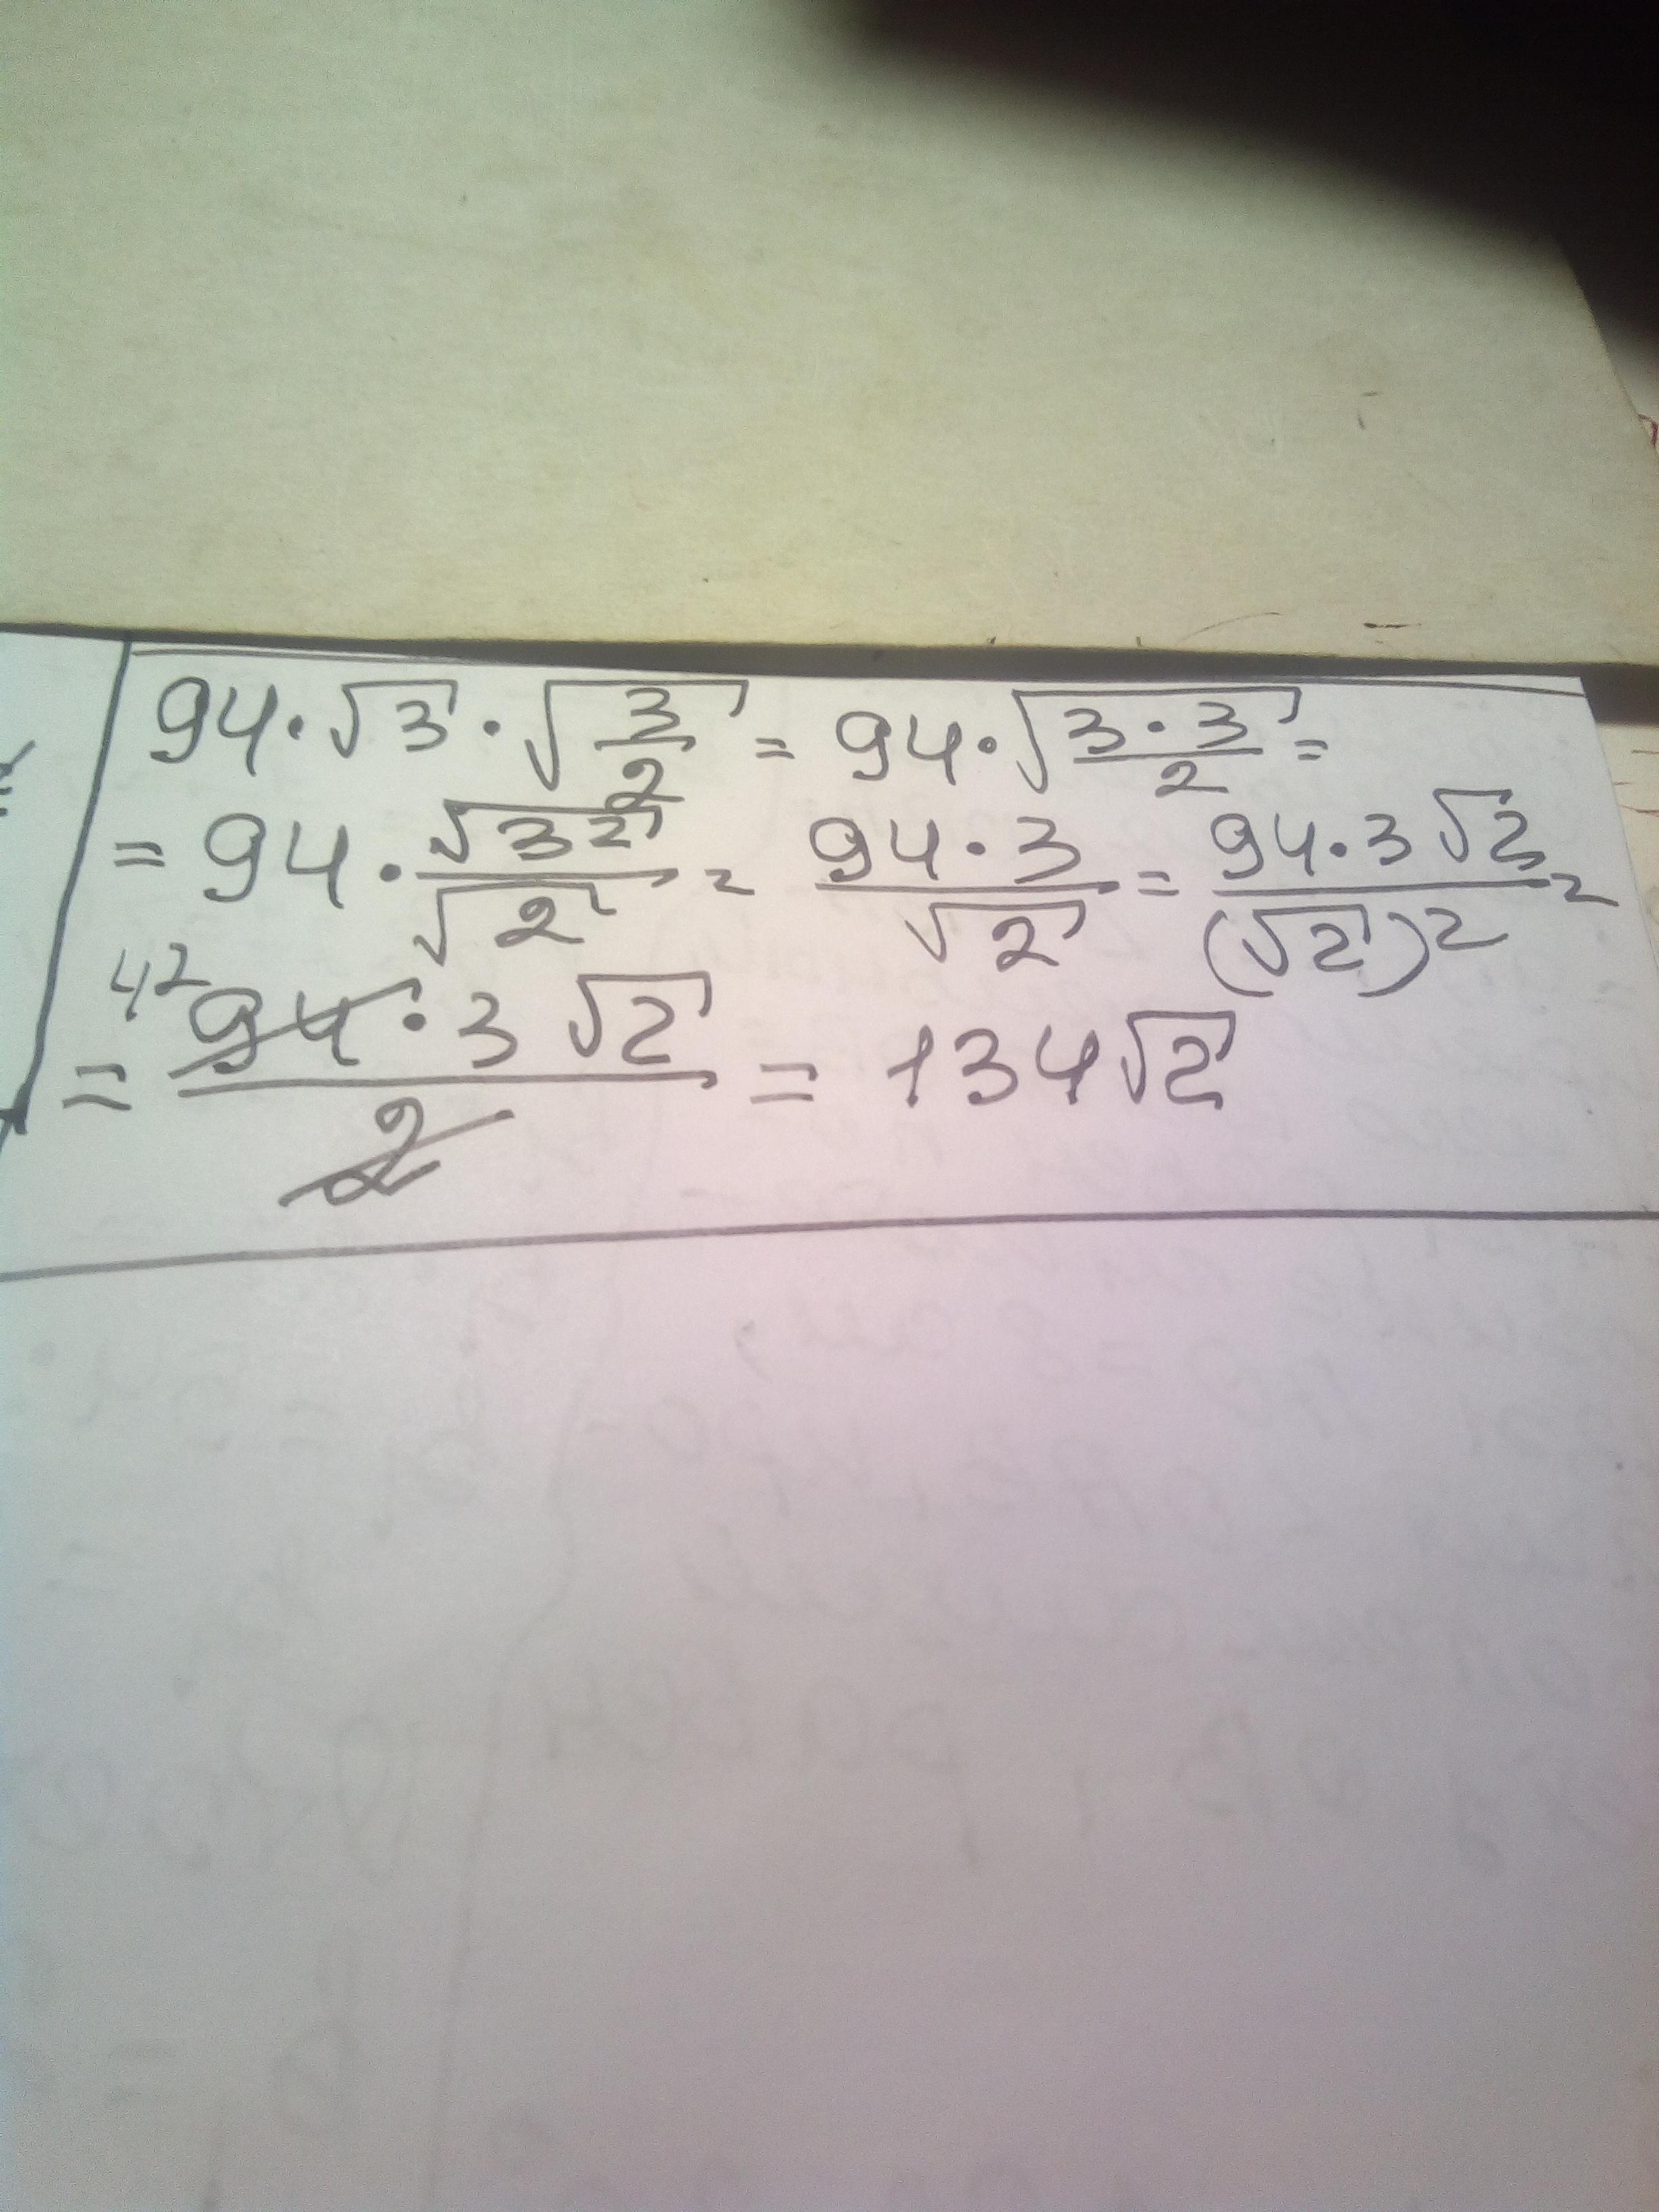 94·√3·√(3/2) = 94·√((3·3)/2) =
= 94·√(3²)/√2 = (94·3)/√2 = (94·3√2)/(√2)² =
42
= (94·3√2)/2 = 134√2